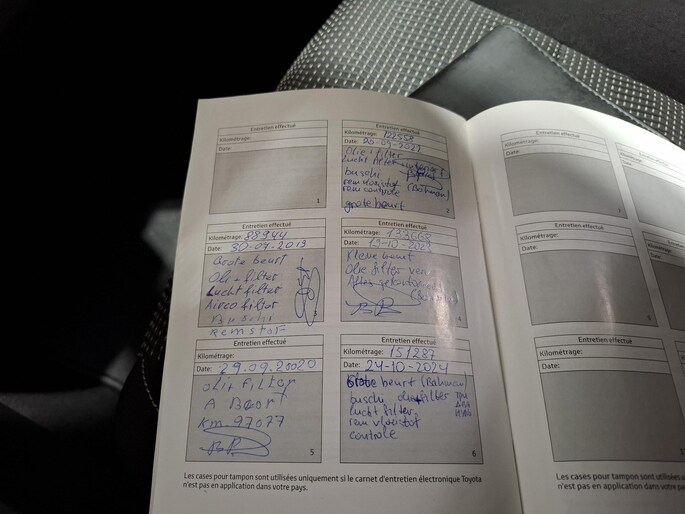 Entretien effectué
Kilométrage:
Date:
1
Entretien effectué
Kilométrage: 122559
Date: 20-09-2022
Olie + filter
Lucht filter
buschi
rem vloeistof
rem controle (Bahman)
grote beurt
2
Entretien effectué
Kilométrage: 88944
Date: 30-07-2019
Grote beurt
Oli + filter
Lucht filter
Airco filter
Buschi
Remstof
3
Entretien effectué
Kilométrage: 133668
Date: 19-10-2023
Kleine beurt
Olie filter
Alles
4
Entretien effectué
Kilométrage:
Date: 29.09.2020
olit Filter
A Beort
Km. 97077
5
Entretien effectué
Kilométrage: 151287
Date: 24-10-2024
Grote beurt (Bahman)
buschi olie filter
lucht filter.
rem vloeistof
controle
6
Les cases pour tampon sont utilisées uniquement si le carnet d'entretien électronique Toyota
n'est pas en application dans votre pays.
Entretien effectué
Kilométrage:
Date:
Entretien effectué
Kilométrage:
Date:
Entretien effectué
Kilométrage:
Date:
Entretien effectué
Kilométrage:
Date:
Les cases pour tampon sont utilisées
n'est pas en application dans votre p